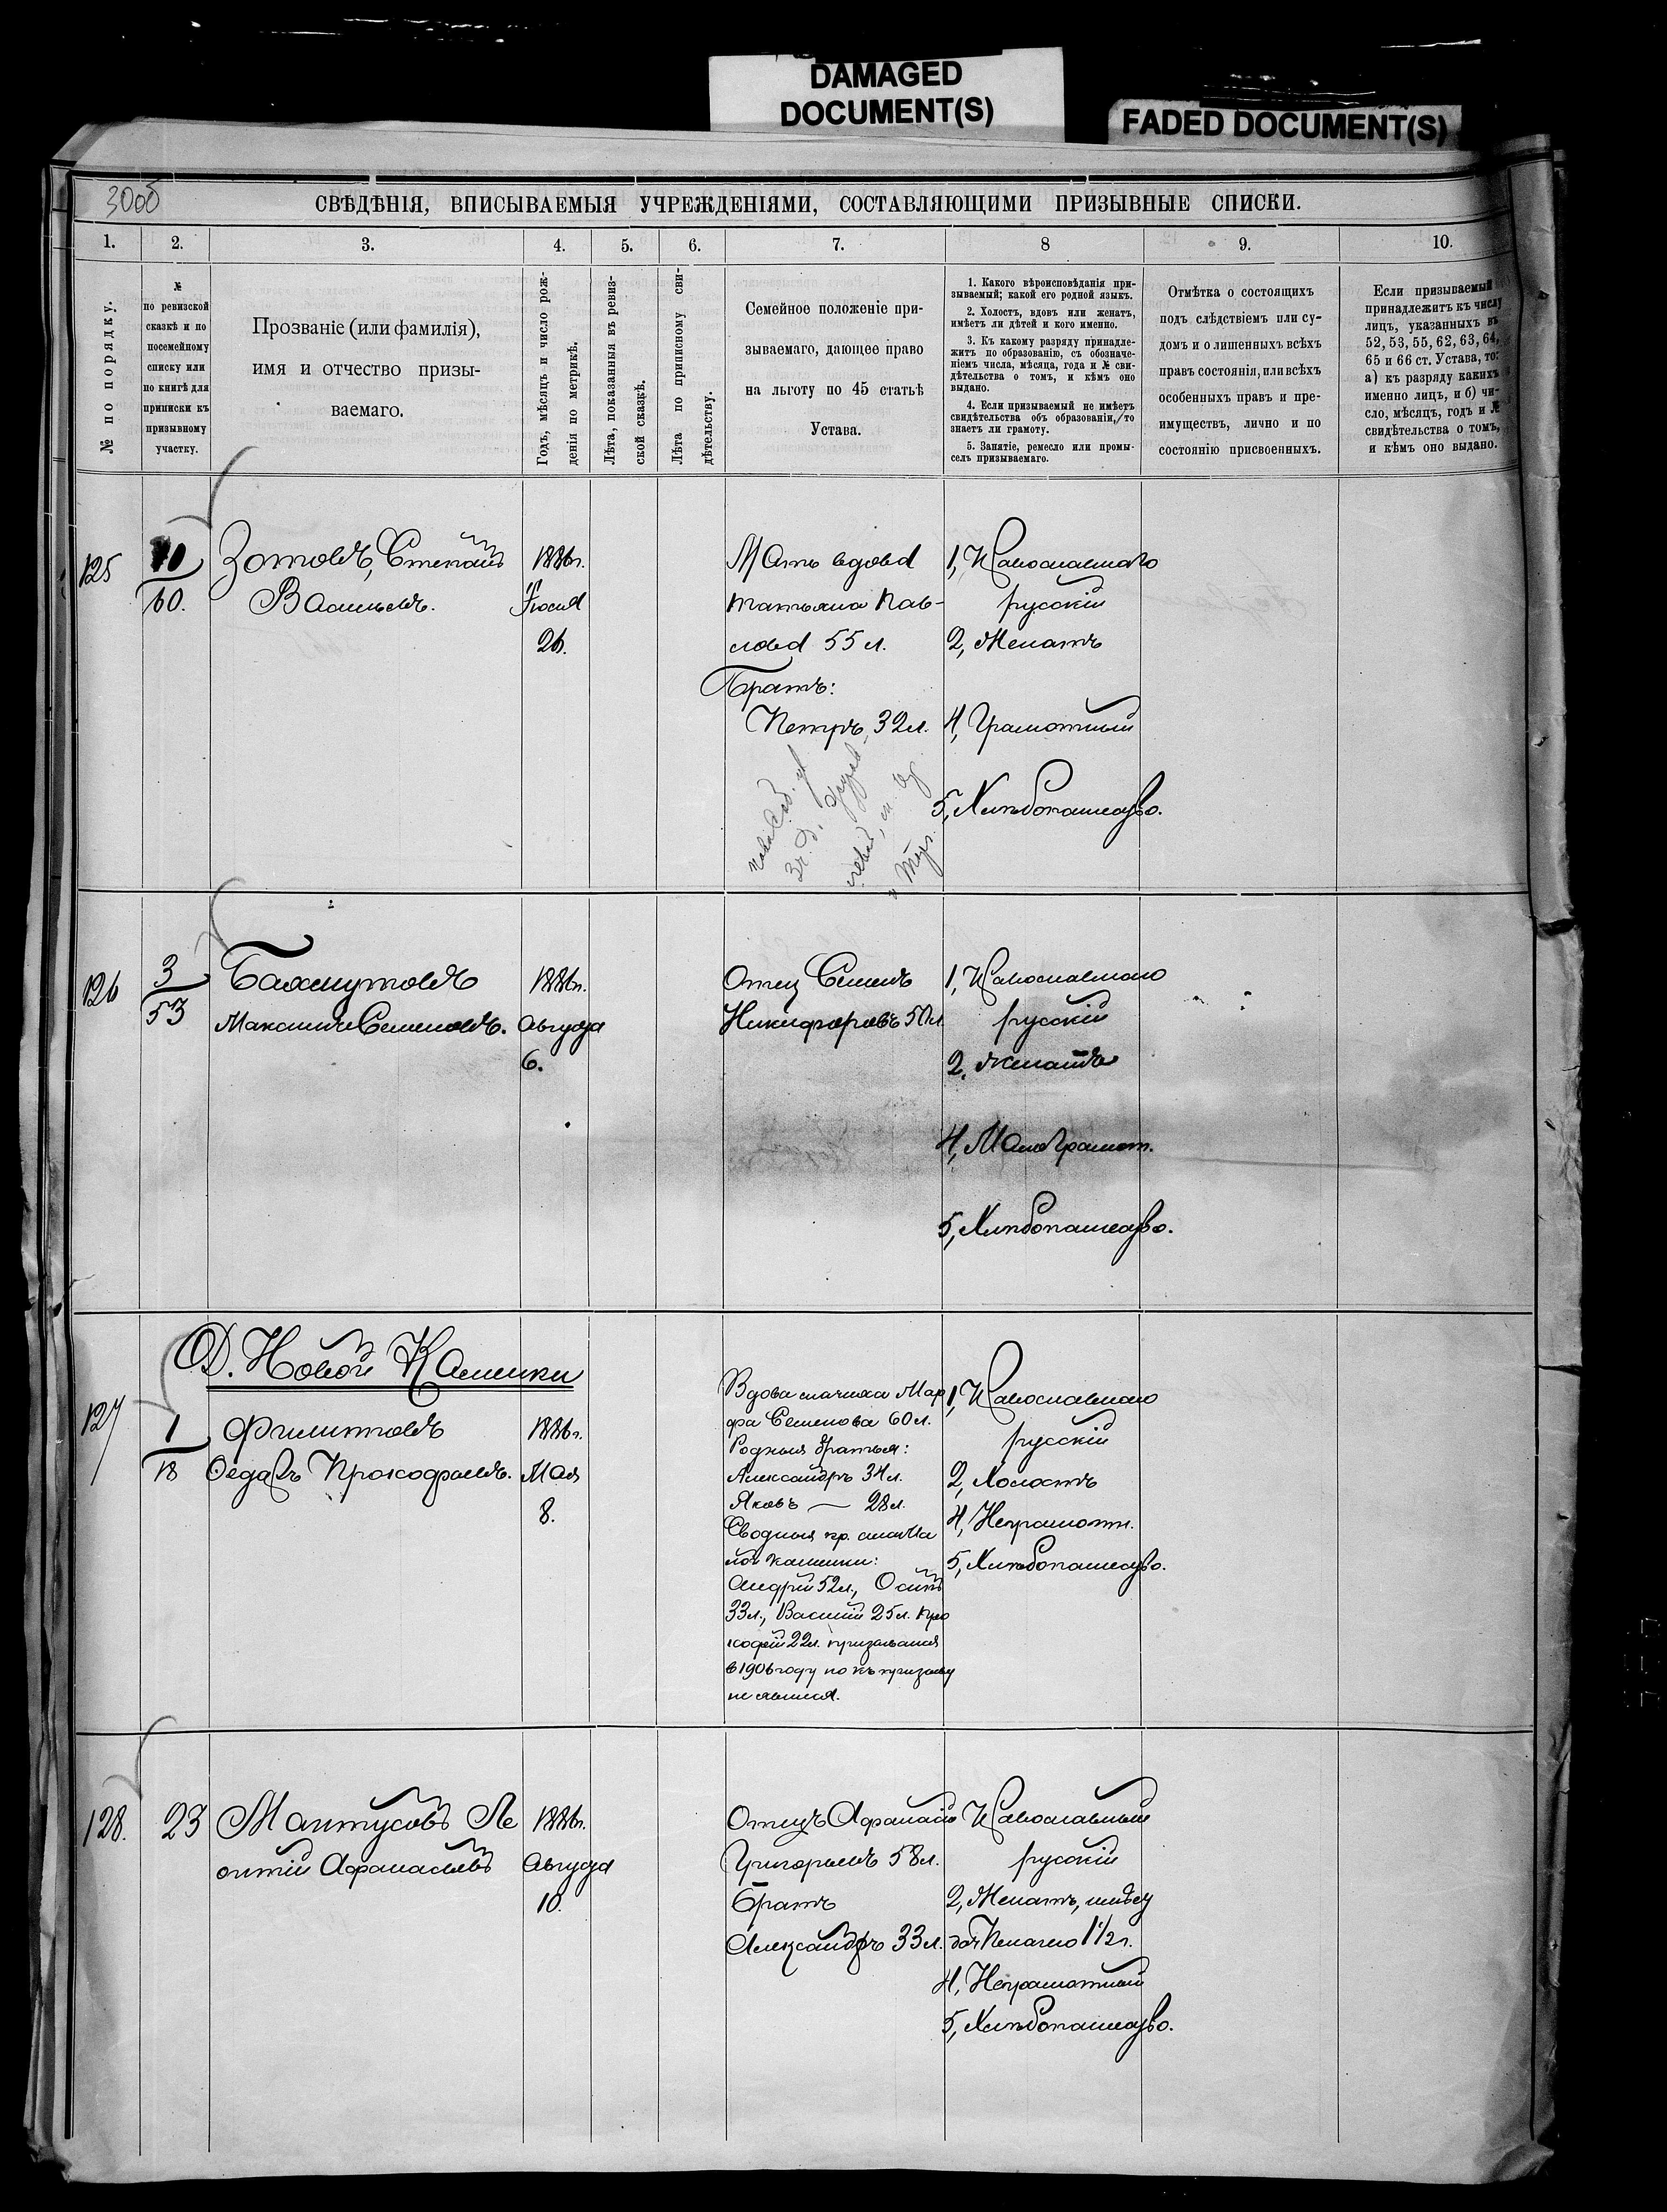 DAMAGED
DOCUMENT(S)
FADED DOCUMENT(S)
30об
СВѢДѢНІЯ, ВПИСЫВАЕМЫЯ УЧРЕЖДЕНІЯМИ, СОСТАВЛЯЮЩИМИ ПРИЗЫВНЫЕ СПИСКИ.
1. 2. 3. 4. 5. 6. 7. 8 9. 10.
№ по порядку.
№
по ревизской
сказкѣ и по
посемейному
списку или
по книгѣ для
приписки къ
призывному
участку.
Прозваніе (или фамилія),
имя и отчество призы-
ваемаго.
Годъ, мѣсяцъ и число рож-
денія по метрикѣ.
Лѣта, показанныя въ ревиз-
ской сказкѣ.
Лѣта по приписному сви-
дѣтельству.
Семейное положеніе при-
зываемаго, дающее право
на льготу по 45 статьѣ
Устава.
1. Какого вѣроисповѣданія при-
зываемый; какой его родной языкъ.
2. Холостъ, вдовъ или женатъ,
имѣетъ ли дѣтей и кого именно.
3. Къ какому разряду принадле-
житъ по образованію, съ обозначе-
ніемъ числа, мѣсяца, года и № сви-
дѣтельства о томъ, и кѣмъ оно
выдано.
4. Если призываемый не имѣетъ
свидѣтельства объ образованіи, то
знаетъ ли грамоту.
5. Занятіе, ремесло или промы-
селъ призываемаго.
Отмѣтка о состоящихъ
подъ слѣдствіемъ или су-
домъ и о лишенныхъ всѣхъ
правъ состоянія, или всѣхъ
особенныхъ правъ и пре-
имуществъ, лично и по
состоянію присвоенныхъ.
Если призываемый
принадлежитъ къ числу
лицъ, указанныхъ въ
52, 53, 55, 62, 63, 64,
65 и 66 ст. Устава, то:
а) къ разряду какихъ
именно лицъ, и б) чи-
сло, мѣсяцъ, годъ и №
свидѣтельства о томъ,
и кѣмъ оно выдано.
125
10
60.
Зотовъ, Степанъ
Васильевъ.
1886г.
Іюля
26.
Мать вдова
Татьяна Пав-
лова 55 л.
Братъ:
Петръ 32л.
1, Православнаго
русскій
2, Женатъ
4, Грамотный
5, Хлѣбопашество.
126
3
53
Бахмутовъ
Максимъ Семеновъ.
1886г.
Августа
6.
Отец Семенъ
Никифоровъ 50л.
1, Православнаго
русскій
2, женатъ
4, Малограмот.
5, Хлѣбопашество.
Д. Новой Камешки
127
1
18
Филиповъ
Федаръ Прокофьевъ.
1886г.
Мая
8.
Вдова мачиха Мар
фа Семенова 60л.
Родныя братья:
Александръ 34л.
Яковъ — 28л.
Сводныя
Камешки:
Андрей 52л., Осипъ
33л., Василій 25л. Про
кофій 22л. призывался
в 1906 году но къ призыву
не явился.
1, Православнаго
русскій
2, Холостъ
4, Неграмотн.
5, Хлѣбопашество.
128.
23
Мантусовъ Ле
онтій Афанасьевъ
1886г.
Августа
10.
Отецъ Афанасій
Григорьевъ 58л.
Братъ
Александръ 33л.
Православный
русскій
2, Женатъ, имѣет
дочь Пелагею 1½г.
4, Неграмотный
5, Хлѣбопашество.